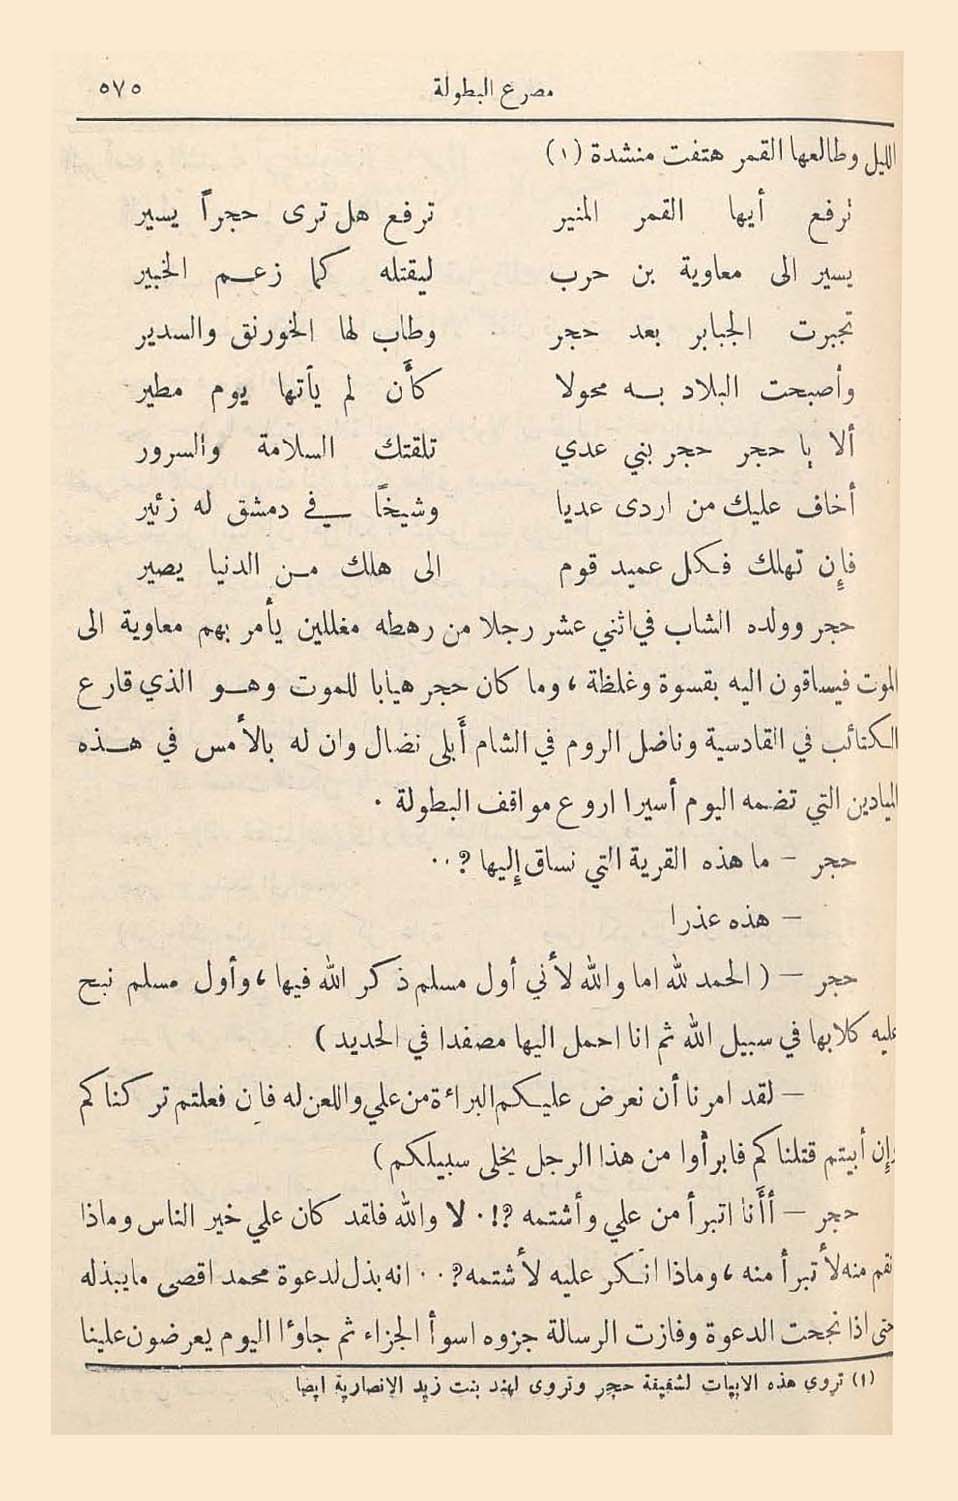 مصرع البطولة ٥٧٥
الليل وطالعها القمر هتفت منشدة (١)
ترفع أيها القمر المنير ترفع هل ترى حجراً يسير
يسير الى معاوية بن حرب ليقتله كما زعم الخبير
تجبرت الجبابر بعد حجر وطاب لها الخورنق والسدير
وأصبحت البلاد به محولا كأن لم يأتها يوم مطير
ألا يا حجر حجر بني عدي تلقتك السلامة والسرور
أخاف عليك من اردى عديا وشيخاً في دمشق له زئير
فإن تهلك فكل عميد قوم الى هلك من الدنيا يصير
حجر وولده الشاب في اثني عشر رجلا من رهطه مغللين يأمر بهم معاوية الى
الموت فيساقون اليه بقسوة وغلظة ، وما كان حجر هيابا للموت وهو الذي قارع
الكتائب في القادسية وناضل الروم في الشام أبلى نضال وان له بالأمس في هذه
الميادين التي تضمه اليوم أسيرا اروع مواقف البطولة .
حجر – ما هذه القرية التي نساق إليها ? ..
– هذه عذرا
حجر – ( الحمد لله اما والله لأني أول مسلم ذكر الله فيها ، وأول مسلم نبح
عليه كلابها في سبيل الله ثم انا احمل اليها مصفدا في الحديد )
– لقد امرنا أن نعرض عليكم البراءة من علي واللعن له فان فعلتم تركناكم
وإن أبيتم قتلناكم فابرأوا من هذا الرجل يخلى سبيلكم )
حجر – أأنا اتبرأ من علي وأشتمه ?! . لا والله فلقد كان علي خير الناس وماذا
نقم منه لأتبرأ منه ، وماذا انكر عليه لأشتمه ? . . انه بذل لدعوة محمد اقصى ما يبذله
حتى اذا نجحت الدعوة وفازت الرسالة جزوه اسوأ الجزاء ثم جاوءا اليوم يعرضون علينا
(١) تروى هذه الابيات لشقيقة حجر وتروى لهند بنت زيد الانصارية ايضا